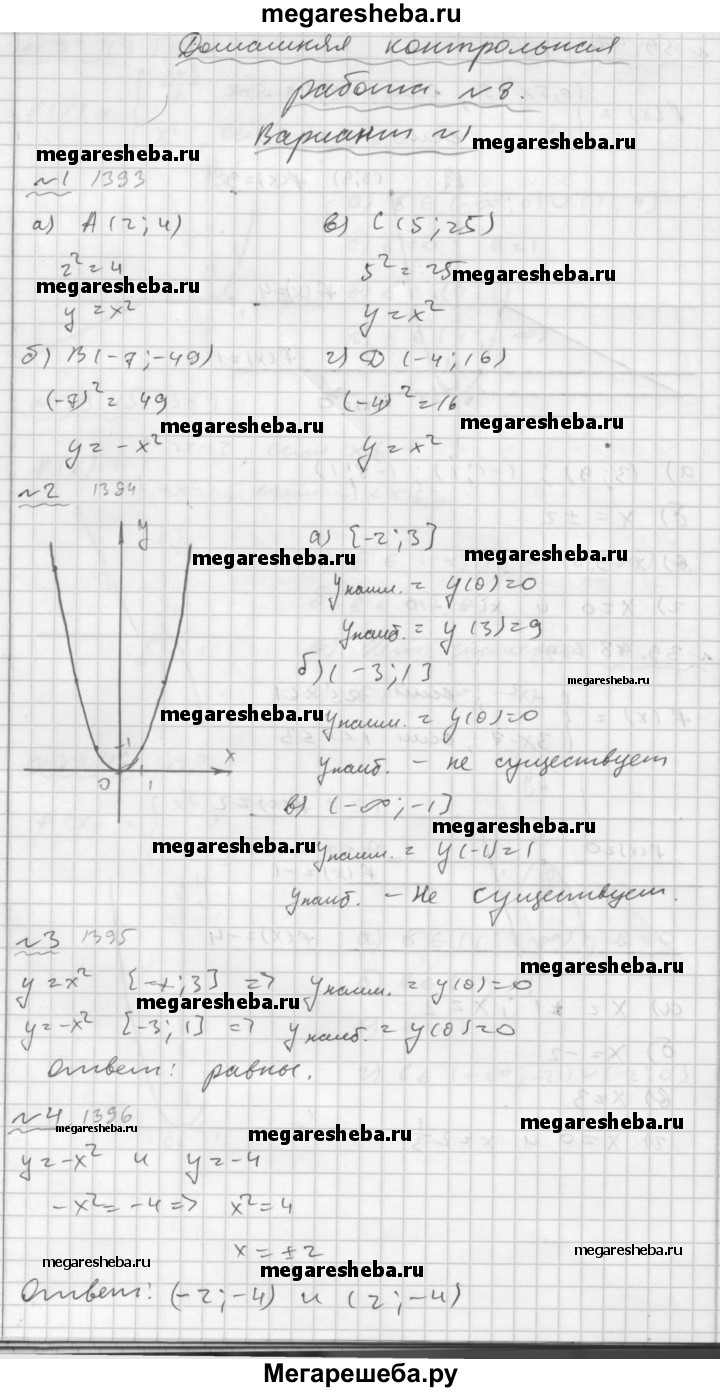 megaresheba.ru
Домашняя контрольная
работа №8.
Вариант №1
megaresheba.ru
megaresheba.ru
№1 1393
а) A (2; 4)
в) C (5; 25)
2² = 4
5² = 25
megaresheba.ru
megaresheba.ru
y = x²
y = x²
б) B (-7; -49)
г) D (-4; 16)
(-7)² = 49
(-4)² = 16
megaresheba.ru
megaresheba.ru
y = -x²
y = x²
№2 1394
y
а) [-2; 3]
megaresheba.ru
megaresheba.ru
y наим. = y(0) = 0
y наиб. = y(3) = 9
б) (-3; 1]
megaresheba.ru
megaresheba.ru
y наим. = y(0) = 0
1
x
y наиб. - не существует
0
1
в) (-∞; -1]
megaresheba.ru
megaresheba.ru
y наим. = y(-1) = 1
y наиб. - Не существует.
№3 1395
megaresheba.ru
y = x² [-1; 3] => y наим. = y(0) = 0
megaresheba.ru
y = -x² [-3; 1] => y наиб. = y(0) = 0
Ответ: равны.
№4 1396
megaresheba.ru
megaresheba.ru
megaresheba.ru
y = -x² и y = -4
-x² = -4 => x² = 4
x = ±2
megaresheba.ru
megaresheba.ru
megaresheba.ru
Ответ: (-2; -4) и (2; -4)
Мегарешеба.ру